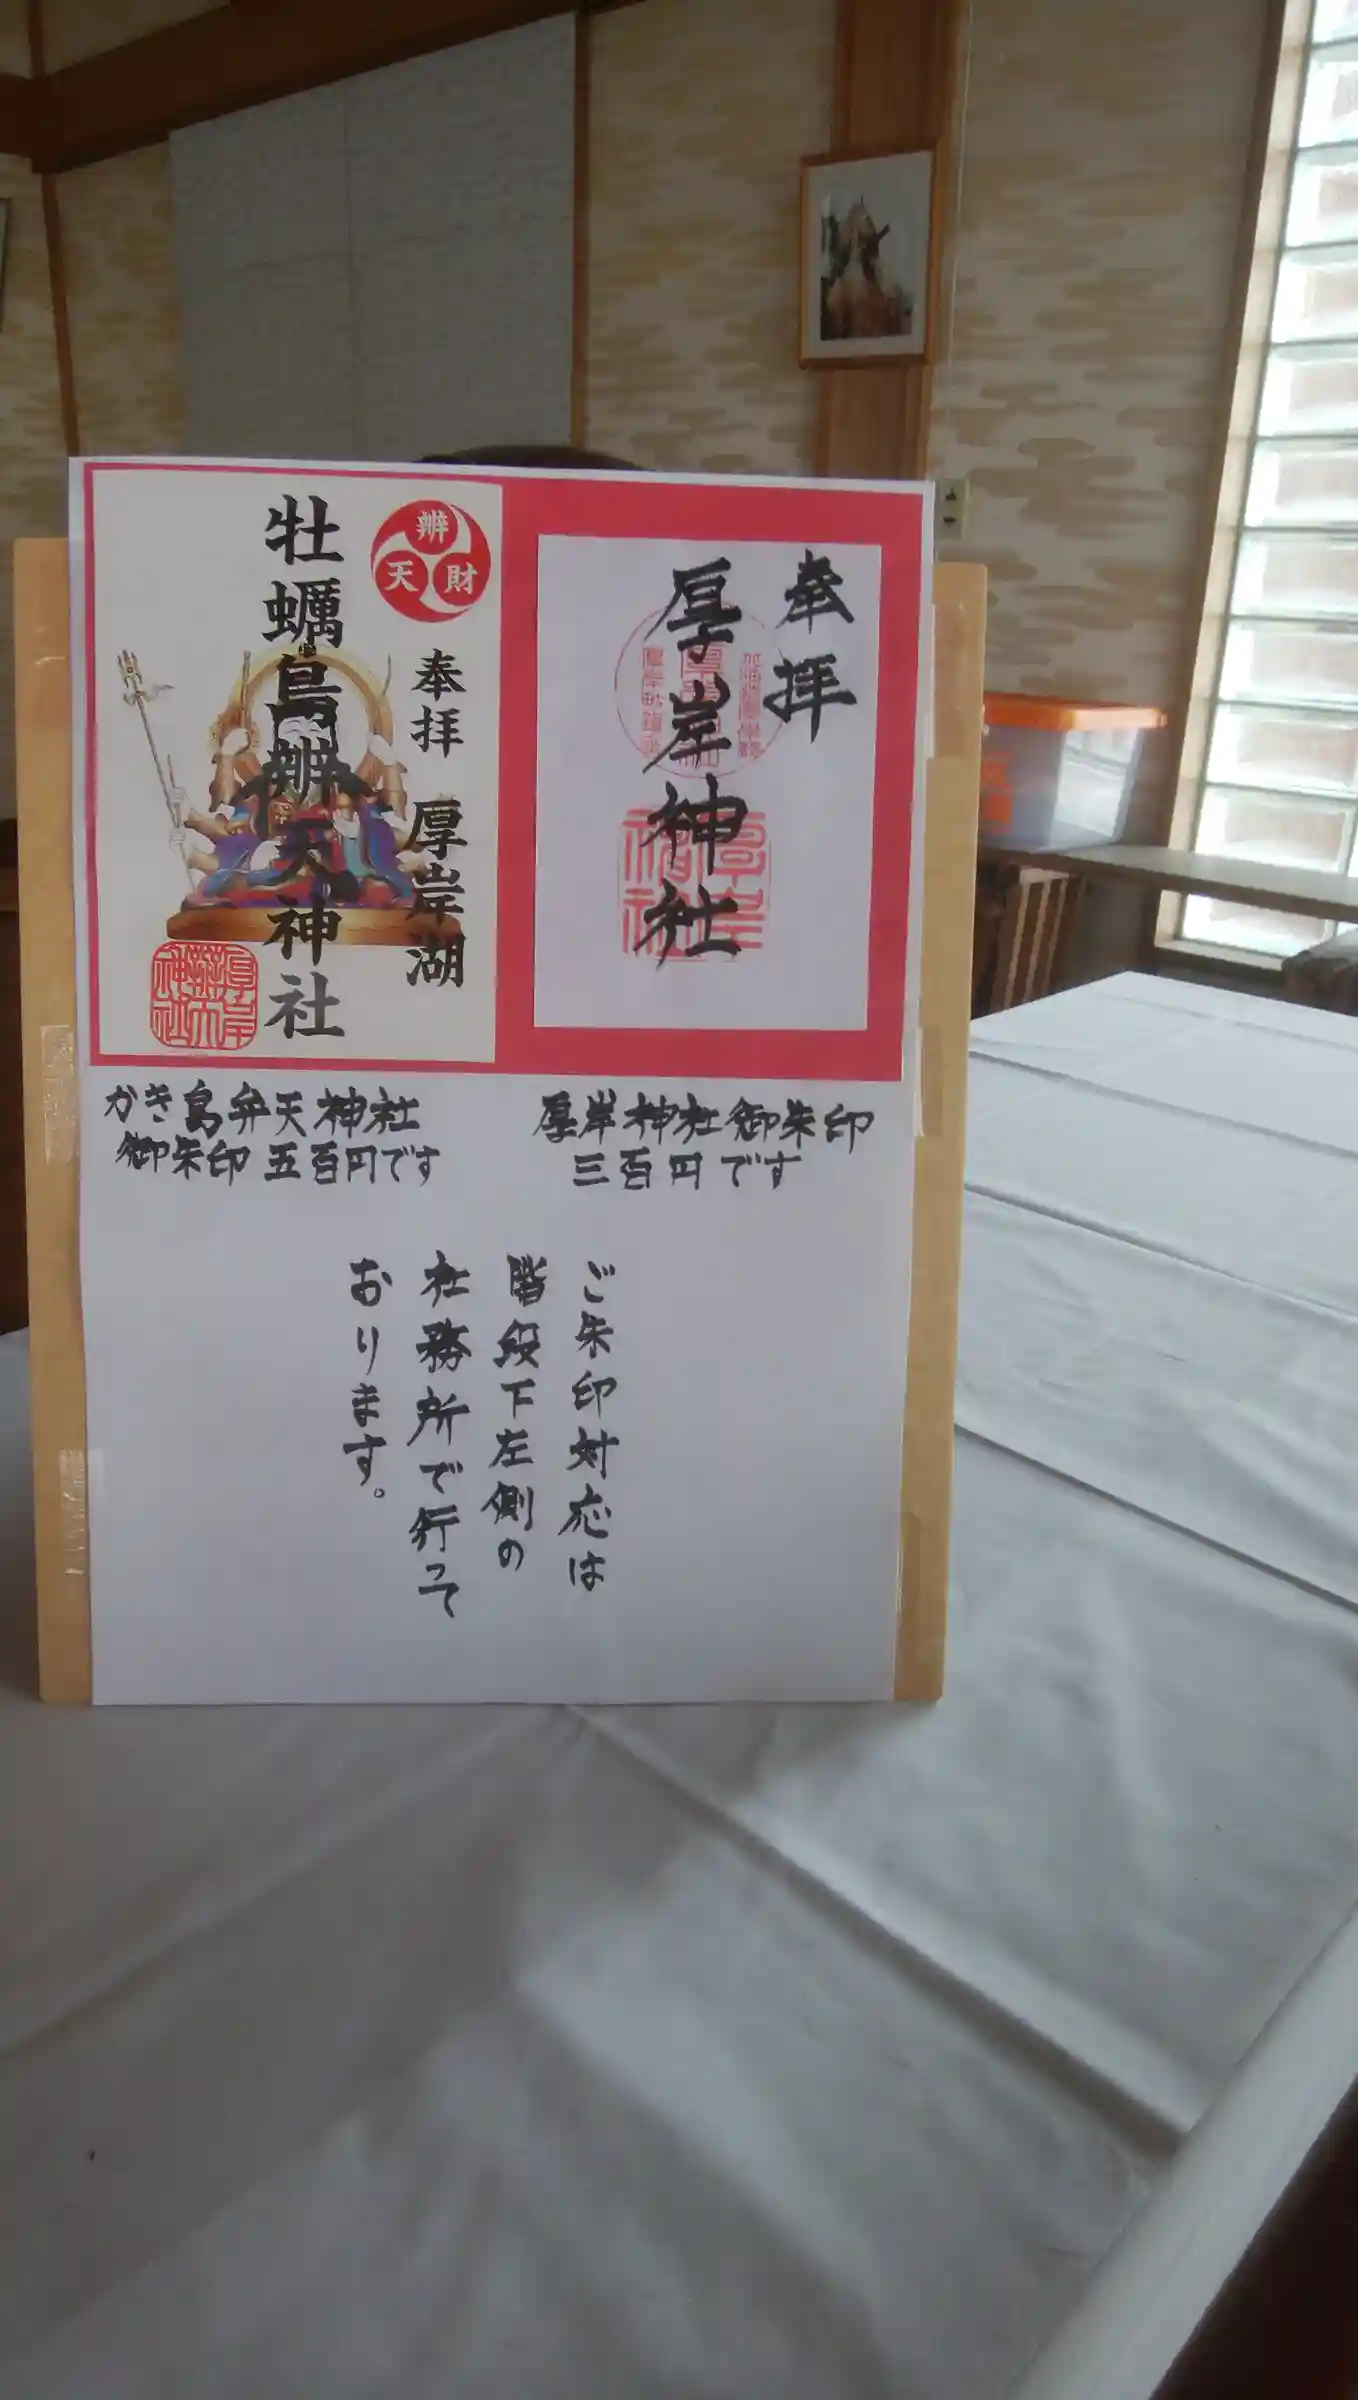 奉拝
厚岸神社
辨
財
天
奉拝 厚岸湖
牡蠣島辨天神社
厚岸神社御朱印
三百円です
かき島弁天神社
御朱印 五百円です
ご朱印対応は
階段下左側の
社務所で行って
おります。